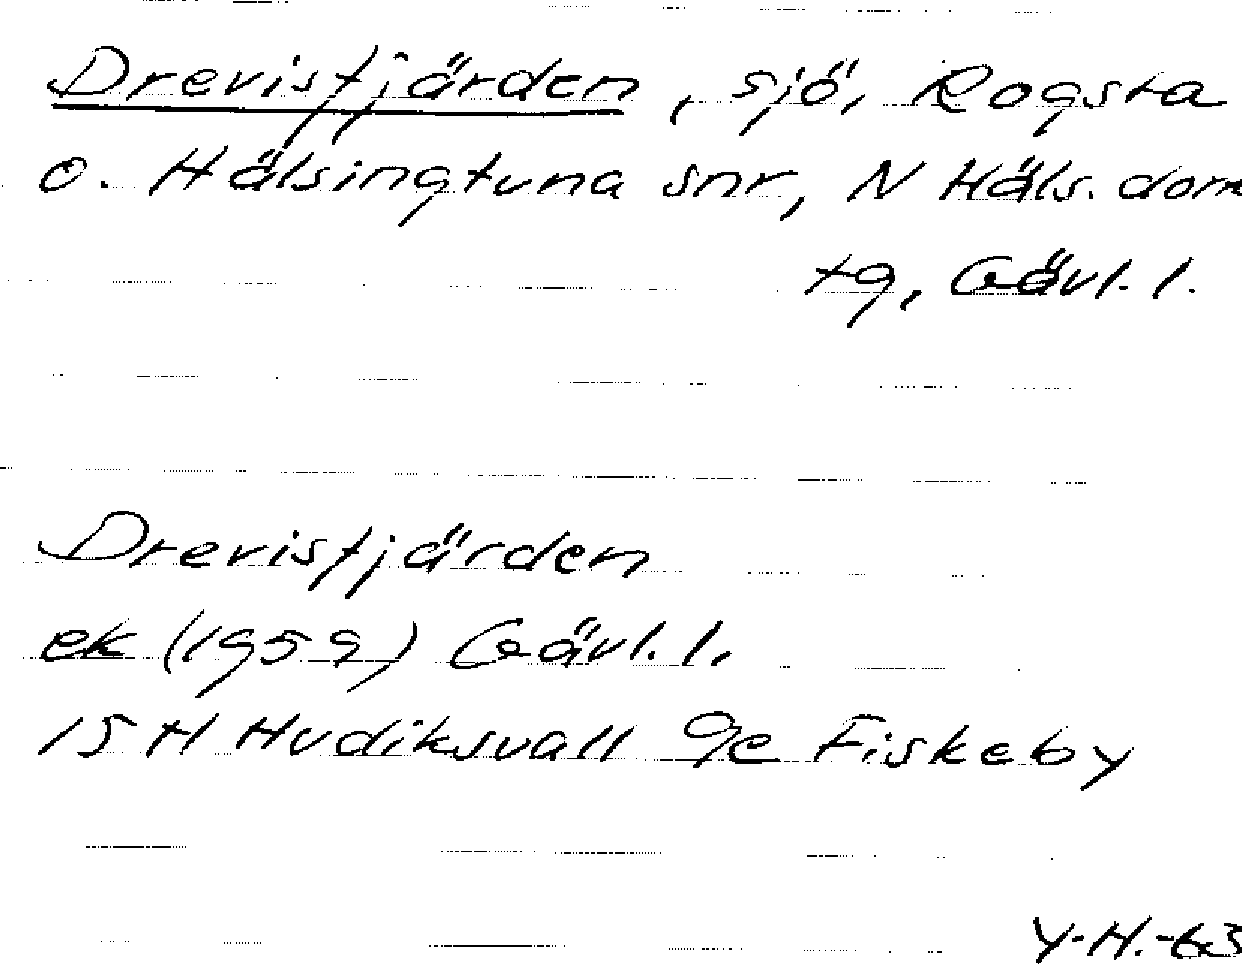 Drevisfjärden, sjö, Rogsta
o. Hälsingtuna snr, N Häls. doms
tg, Gävl. l.
Drevisfjärden
ek (1959) Gävl. l.
15 H Hudiksvall 9e Fiskeby
Y-H.-63